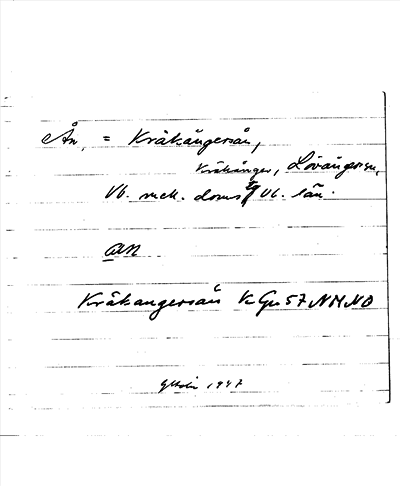 Ån, = Kråkångersån,
Kråkånger, Lövånger sn,
Vb. mell. doms Vb. län.
an
Kråkangersån KGu57NMNO
GHolm 1947